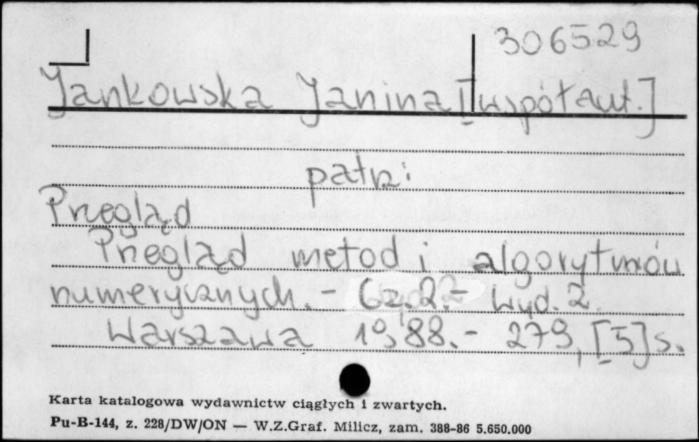 306529
Jankowska Janina [współaut.]
patrz:
Przegląd
Przegląd metod i algorytmów
numerycznych. - Cz. 2. - Wyd. 2.
Warszawa 1988. - 279, [5] s.
Karta katalogowa wydawnictw ciągłych i zwartych.
Pu-B-144, z. 228/DW/ON — W.Z.Graf. Milicz, zam. 388-86 5.650.000